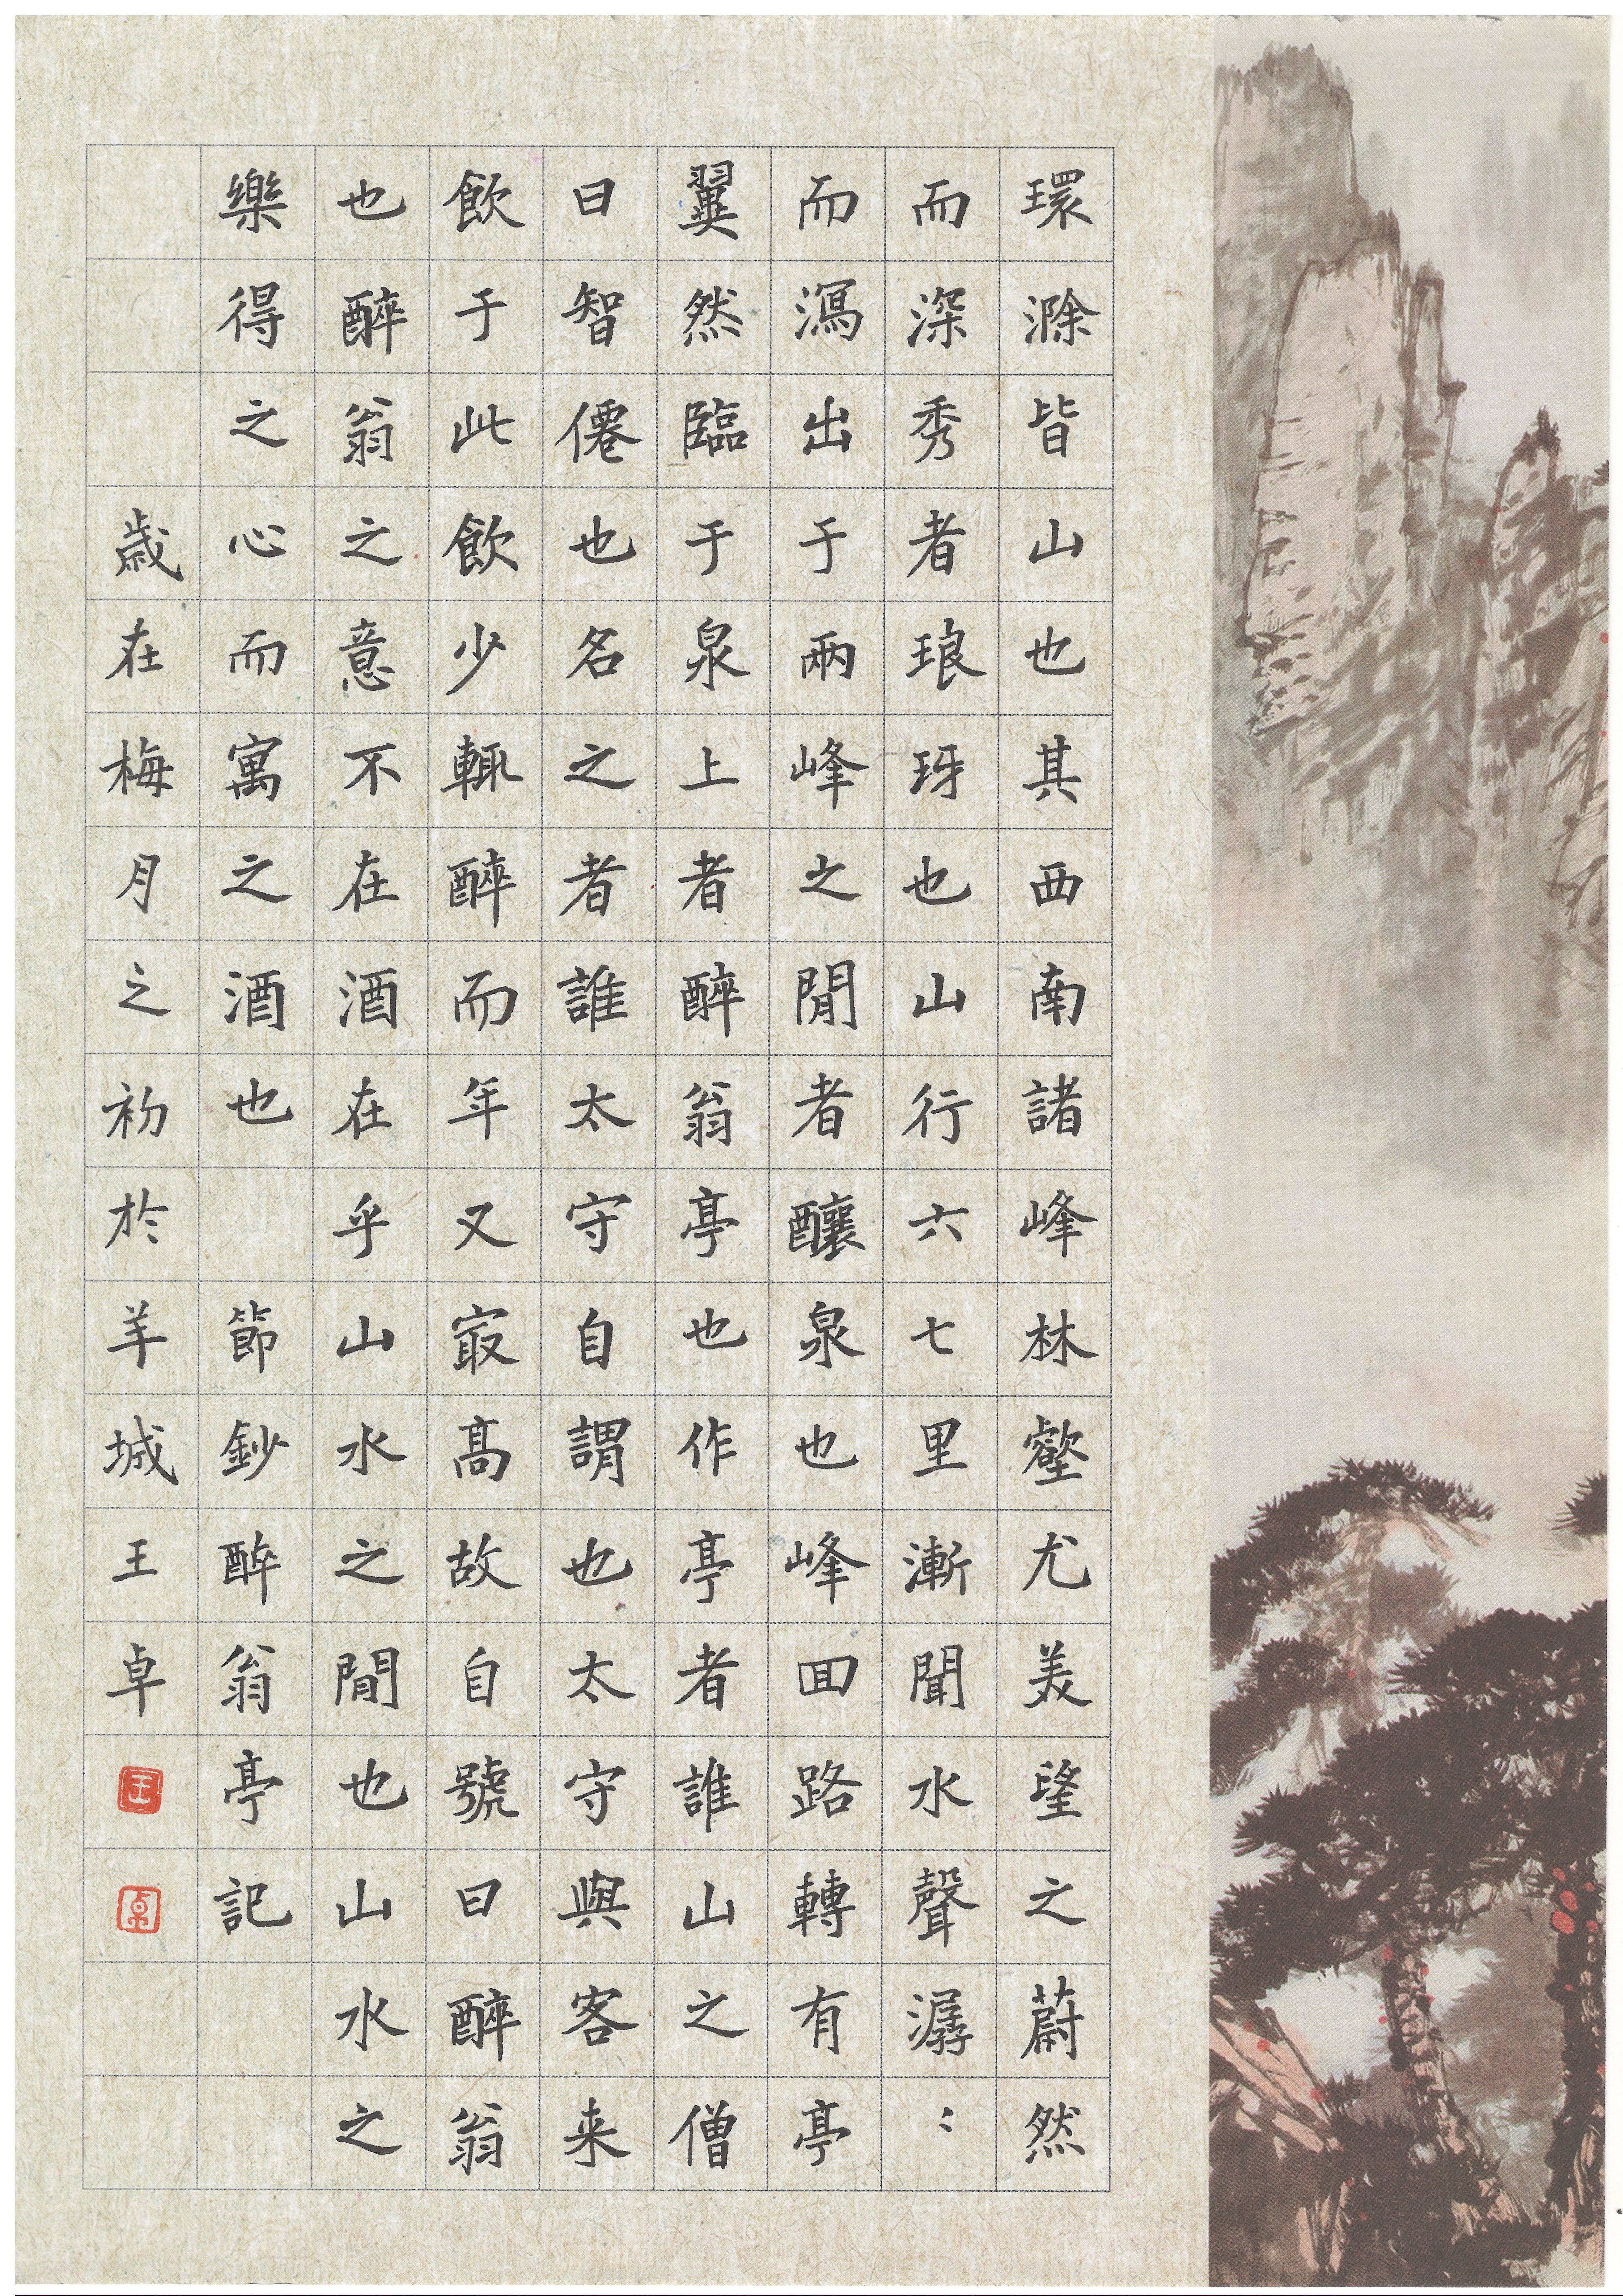 環滁皆山也其西南諸峰林壑尤美望之蔚然
而深秀者琅玡也山行六七里漸聞水聲潺〻
而瀉出于兩峰之間者釀泉也峰回路轉有亭
翼然臨于泉上者醉翁亭也作亭者誰山之僧
曰智僊也名之者誰太守自謂也太守與客来
飲于此飲少輒醉而年又㝡高故自號曰醉翁
也醉翁之意不在酒在乎山水之間也山水之
樂得之心而寓之酒也 節鈔醉翁亭記
歳在梅月之初於羊城王卓
王
卓